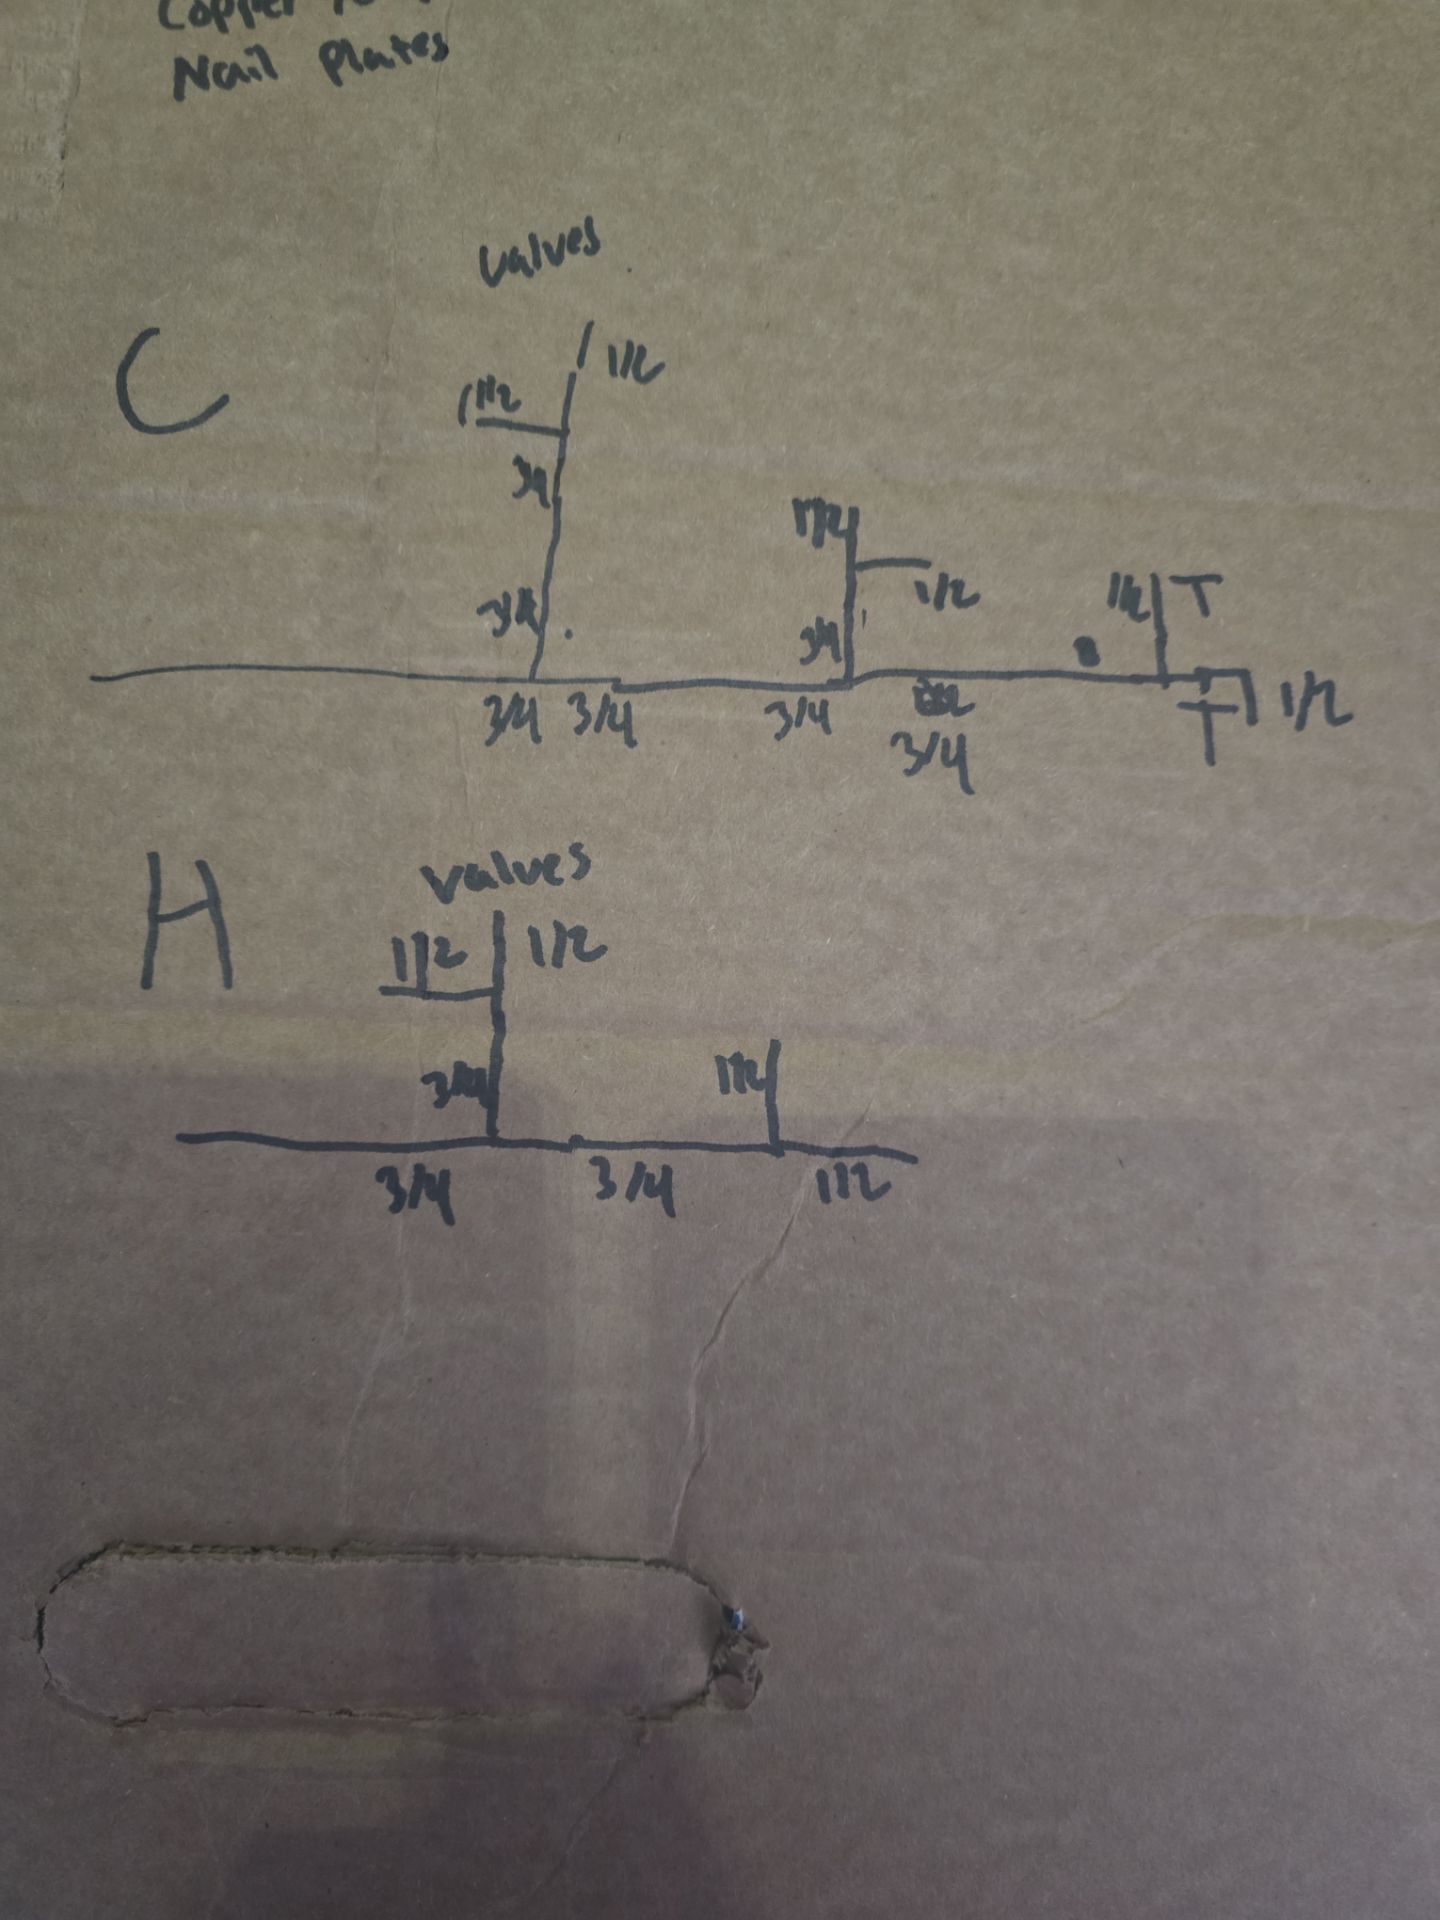 Copper
Nail Plates
valves
C
1/2
1/2
3/4
1/2
1/2
3/4
3/4
1/2 T
3/4 3/4
3/4
T 1/2
3/4
H
valves
1/2 1/2
3/4
1/2
3/4
3/4
1/2